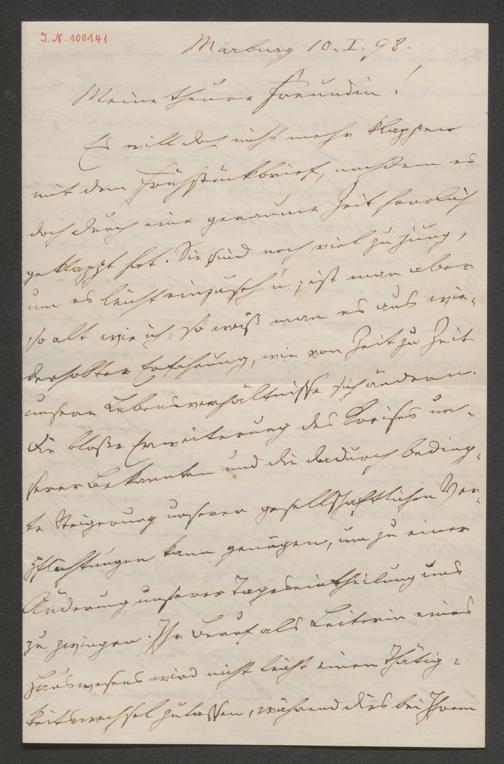 J.N. 100141
Marburg 10.I.98.
Meine theure Freundin!
Es will doch nicht mehr klappen
mit dem Frühstückbrief, nachdem es
doch durch eine geraume Zeit herrlich
geklappt hat. Sie sind noch viel zu jung,
um es leicht einzuseh'n, ist man aber
so alt wie ich, so weiß man es aus wie-
derholter Erfahrung, wie von Zeit zu Zeit
unsere Lebensverhältnisse sich ändern.
Die bloße Erweiterung des Kreises un-
serer Bekannten und die dadurch beding-
te Steigerung unserer gesellschaftlichen Ver-
pflichtungen kann genügen, um zu einer
Änderung unserer Tageseintheilung uns
zu zwingen. Ihr Beruf als Leiterin eines
Hauswesens wird nicht leicht einen Thätig-
keitswechsel zulassen, während dies bei Ihrem